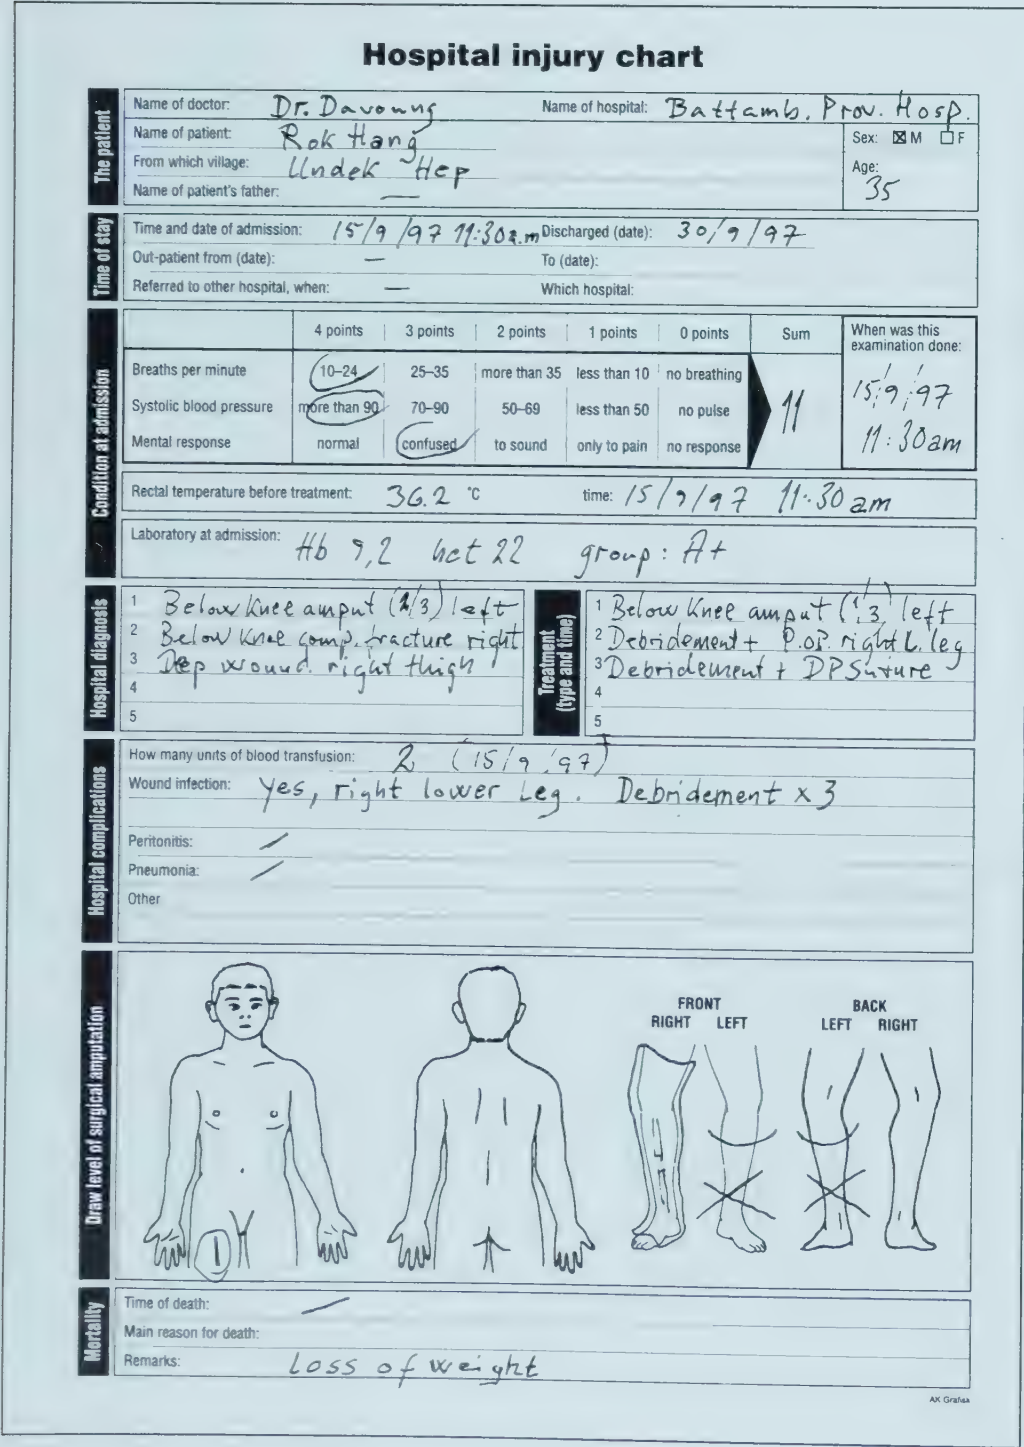 Hospital injury chart
The patient
Name of doctor: Dr. Davoung Name of hospital: Battamb. Prov. Hosp.
Name of patient: Rok Hang Sex: ☒ M ☐ F
From which village: Undek Hep Age: 35
Name of patient's father: —
Time of stay
Time and date of admission: 15/9/97 11:30 a.m Discharged (date): 30/9/97
Out-patient from (date): — To (date):
Referred to other hospital, when: — Which hospital:
Condition at admission
4 points 3 points 2 points 1 points 0 points Sum When was this examination done:
Breaths per minute 10–24 25–35 more than 35 less than 10 no breathing
Systolic blood pressure more than 90 70–90 50–69 less than 50 no pulse 11 15/9/97
Mental response normal confused to sound only to pain no response 11:30am
Rectal temperature before treatment: 36.2 °C time: 15/9/97 11:30 am
Laboratory at admission: Hb 9,2 hct 22 group: A+
Hospital diagnosis
1 Below Knee amput (2/3) left
2 Below Knee comp. fracture right
3 Dep wound. right thigh
4
5
Treatment (type and time)
1 Below Knee amput (1/3) left
2 Debridement + P.O.P. right L. leg
3 Debridement + DPSuture
4
5
Hospital complications
How many units of blood transfusion: 2 (15/9/97)
Wound infection: Yes, right lower Leg. Debridement x 3
Peritonitis: /
Pneumonia: /
Other
Draw level of surgical amputation
FRONT BACK
RIGHT LEFT LEFT RIGHT
Mortality
Time of death: /
Main reason for death:
Remarks: Loss of weight
AK Grafisk